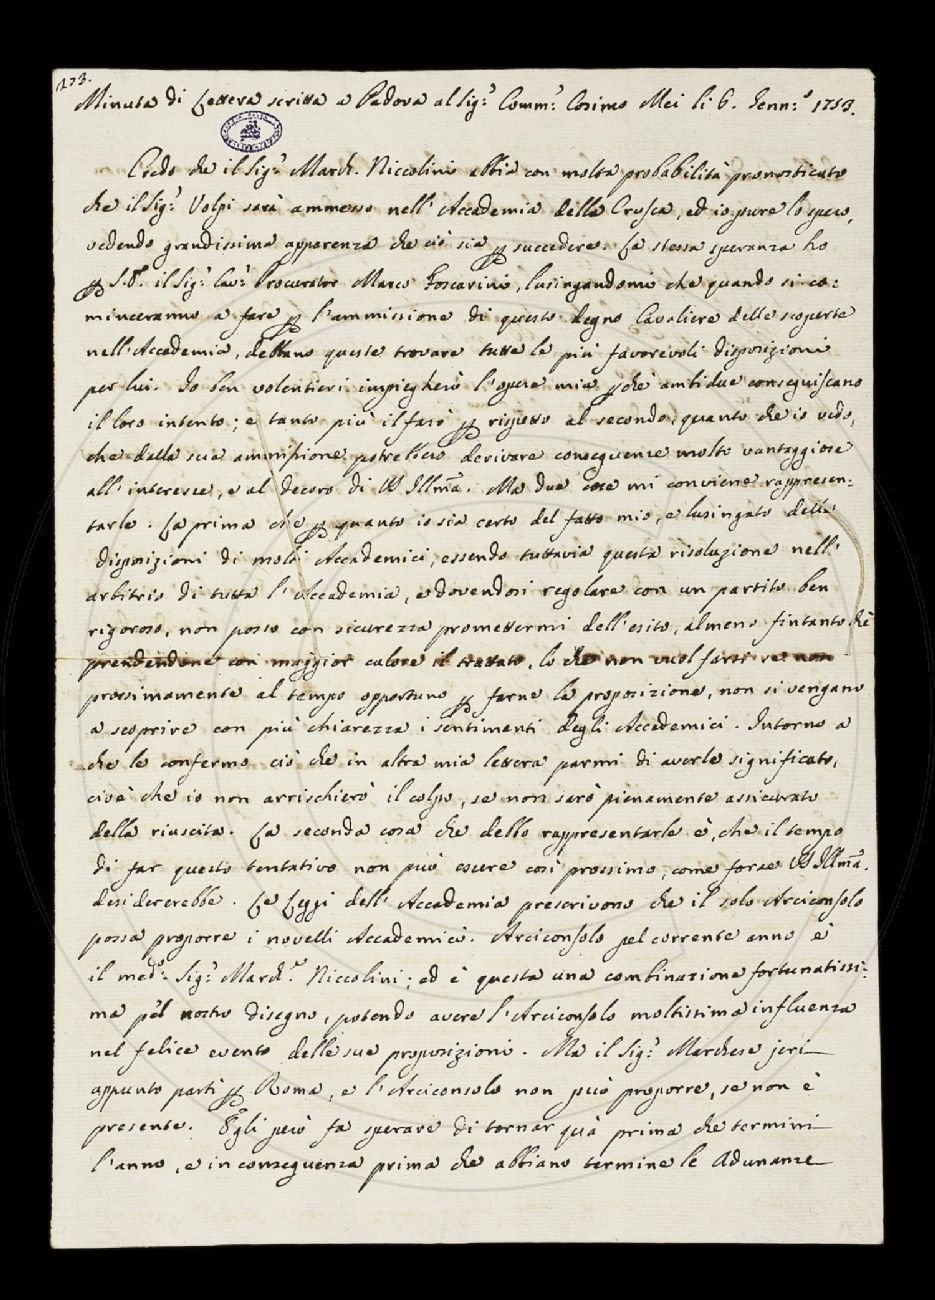 173.
Minuta di Lettera scritta a Padova al Sig.r Comm.r Cosimo Mei li 6. Genn.o 1753.
Credo che il Sig.r March. Niccolini abbia con molta probabilità pronosticato
che il Sig.r Volpi sarà ammesso nell'Accademia della Crusca, ed io pure lo spero,
vedendo grandissima apparenza che ciò sia p succedere. La stessa speranza ho
p S.E. il Sig.r Cav.r Procuratore Marco Foscarini, lusingandomi che quando si co:
minceranno a fare p l'ammissione di questo degno Cavaliere delle scoperte
nell'Accademia, debbano queste trovare tutte le più favorevoli disposizioni
per lui. Io ben volentieri impiegherò l'opera mia pchè ambidue conseguiscano
il loro intento; e tanto più il farò p rispetto al secondo, quanto che io vedo,
che dalla sua ammissione potrebbero derivare conseguenze molto vantaggiose
all'interesse, e al decoro di VS Illma. Ma due cose mi conviene rappresen:
tarle. La prima che p quanto io sia certo del fatto mio, e lusingato delle
disposizioni di molti Accademici, essendo tuttavia questa risoluzione nell'
arbitrio di tutta l'Accademia, e dovendosi regolare con un partito ben
rigoroso, non posso con sicurezza promettermi dell'esito, almeno fintanto chè
prendendone con maggior calore il trattato, lo che non vuol farsi se non
prossimamente al tempo opportuno p farne la proposizione, non si vengano
a scoprire con più chiarezza i sentimenti degli Accademici. Intorno a
che le confermo ciò che in altra mia lettera parmi di averle significato,
cioè che io non arrischierò il colpo, se non sarò pienamente assicurato
della riuscita. La seconda cosa che debbo rappresentarle è, che il tempo
di far questo tentativo non può essere così prossimo, come forse VS Illma.
desidererebbe. Le Leggi dell'Accademia prescrivono che il solo Arciconsolo
possa proporre i novelli Accademici. Arciconsolo pel corrente anno è
il med.o Sig.r March.e Niccolini; ed è questa una combinazione fortunatissi:
ma pel nostro disegno, potendo avere l'Arciconsolo moltissima influenza
nel felice evento delle sue proposizioni. Ma il Sig.r Marchese jeri
appunto partì p Roma, e l'Arciconsolo non può proporre, se non è
presente. Egli però fa sperare di tornar quà prima che termini
l'anno, e in conseguenza prima che abbiano termine le Adunanze